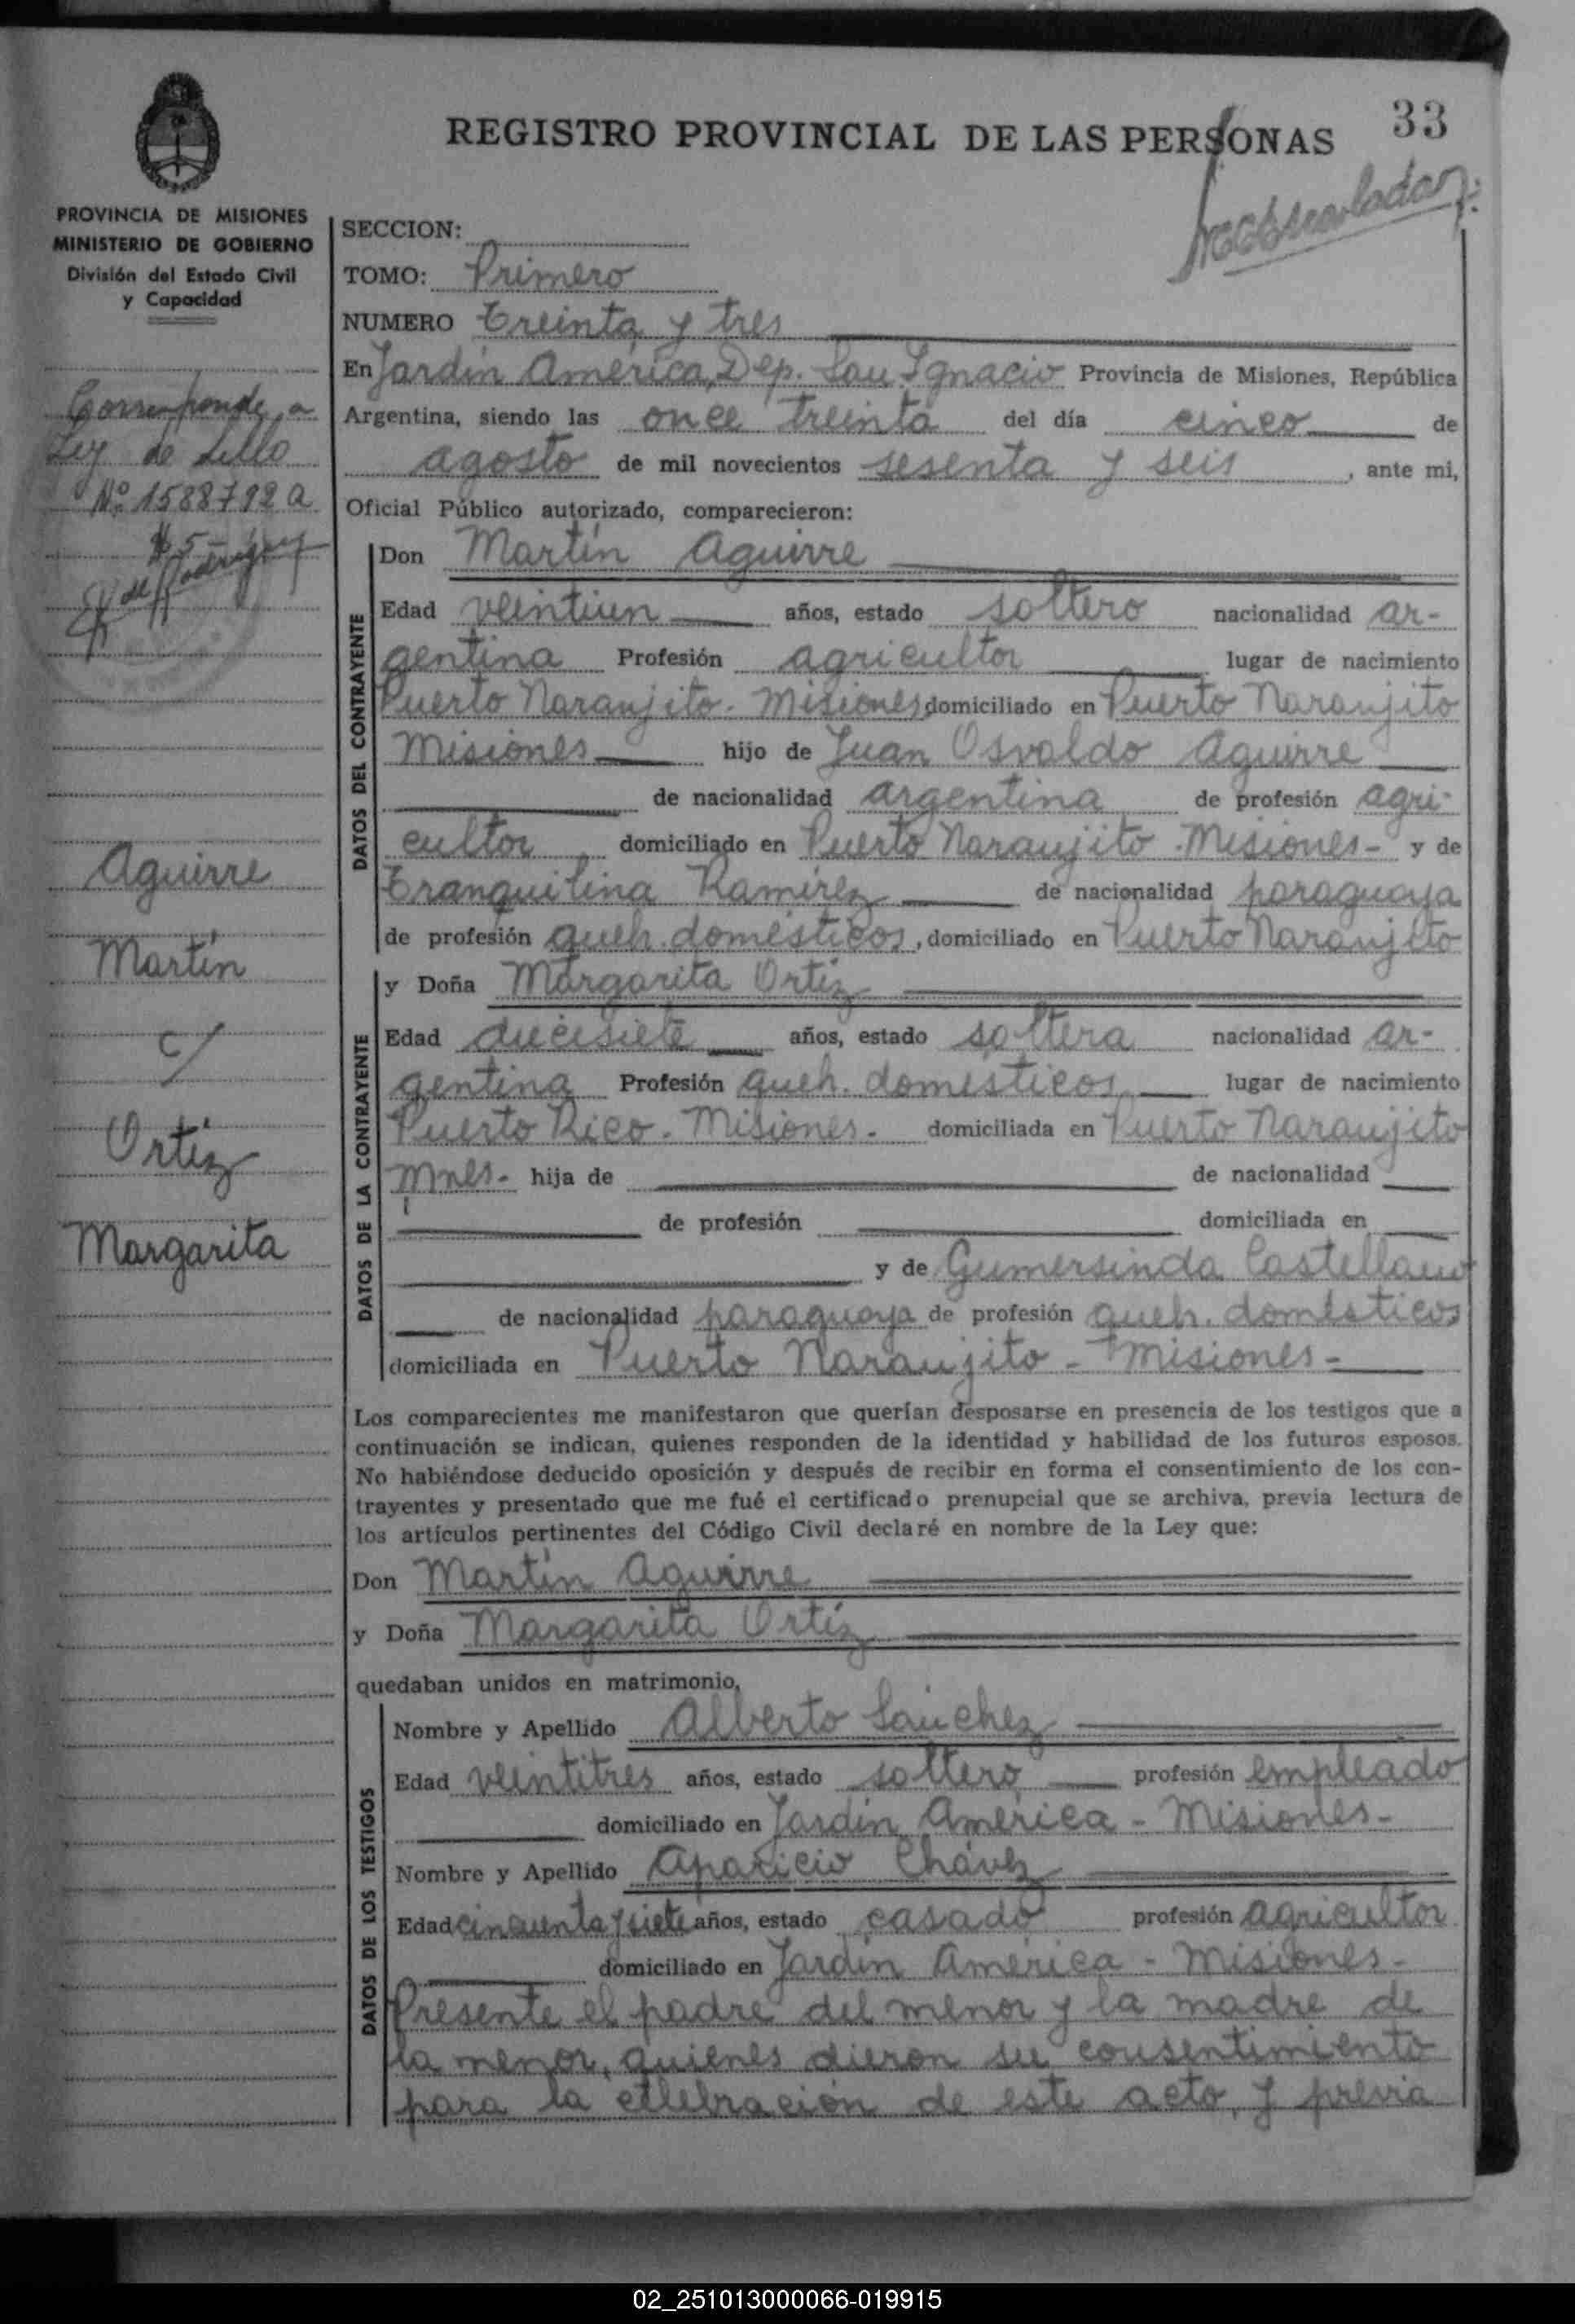 33
REGISTRO PROVINCIAL DE LAS PERSONAS
PROVINCIA DE MISIONES
MINISTERIO DE GOBIERNO
División del Estado Civil
y Capacidad
Corresponde a
Ley de Sello
Nº 1588792 a
$ 5 -
Aguirre
Martín
c/
Ortíz
Margarita
SECCION:
TOMO: Primero
NUMERO Treinta y tres
En Jardín América, Dep. San Ignacio Provincia de Misiones, República
Argentina, siendo las once treinta del día cinco de
agosto de mil novecientos sesenta y seis, ante mi,
Oficial Público autorizado, comparecieron:
DATOS DEL CONTRAYENTE
Don Martín Aguirre
Edad veintiun años, estado soltero nacionalidad ar-
gentina Profesión agricultor lugar de nacimiento
Puerto Naranjito - Misiones domiciliado en Puerto Naranjito
Misiones hijo de Juan Osvaldo Aguirre
de nacionalidad argentina de profesión agri-
cultor domiciliado en Puerto Naranjito - Misiones - y de
Tranquilina Ramírez de nacionalidad paraguaya
de profesión queh. domésticos, domiciliado en Puerto Naranjito
DATOS DE LA CONTRAYENTE
y Doña Margarita Ortíz
Edad diecisiete años, estado soltera nacionalidad ar-
gentina Profesión queh. domésticos lugar de nacimiento
Puerto Rico - Misiones - domiciliada en Puerto Naranjito
Mnes - hija de de nacionalidad
de profesión domiciliada en
y de Gumersinda Castellano
de nacionalidad paraguaya de profesión queh. domésticos
domiciliada en Puerto Naranjito - Misiones -
Los comparecientes me manifestaron que querían desposarse en presencia de los testigos que a
continuación se indican, quienes responden de la identidad y habilidad de los futuros esposos.
No habiéndose deducido oposición y después de recibir en forma el consentimiento de los con-
trayentes y presentado que me fué el certificado prenupcial que se archiva, previa lectura de
los artículos pertinentes del Código Civil declaré en nombre de la Ley que:
Don Martín Aguirre
y Doña Margarita Ortíz
quedaban unidos en matrimonio,
DATOS DE LOS TESTIGOS
Nombre y Apellido Alberto Sánchez
Edad veintitres años, estado soltero profesión empleado
domiciliado en Jardín América - Misiones -
Nombre y Apellido Aparicio Chávez
Edad cincuenta y siete años, estado casado profesión agricultor
domiciliado en Jardín América - Misiones -
Presente el padre del menor y la madre de
la menor, quienes dieron su consentimiento
para la celebración de este acto, y previa
02_251013000066-019915